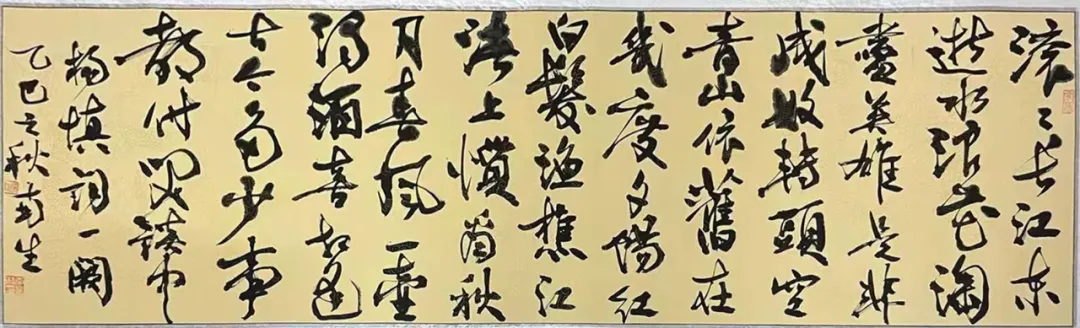 滚〻长江东
逝水浪花淘
盡英雄是非
成敗轉頭空
青山依舊在
幾度夕陽紅
白髮漁樵江
渚上慣看秋
月春風一壺
濁酒喜相逢
古今多少事
都付笑談中
楊慎詞一闋
乙巳之秋 生